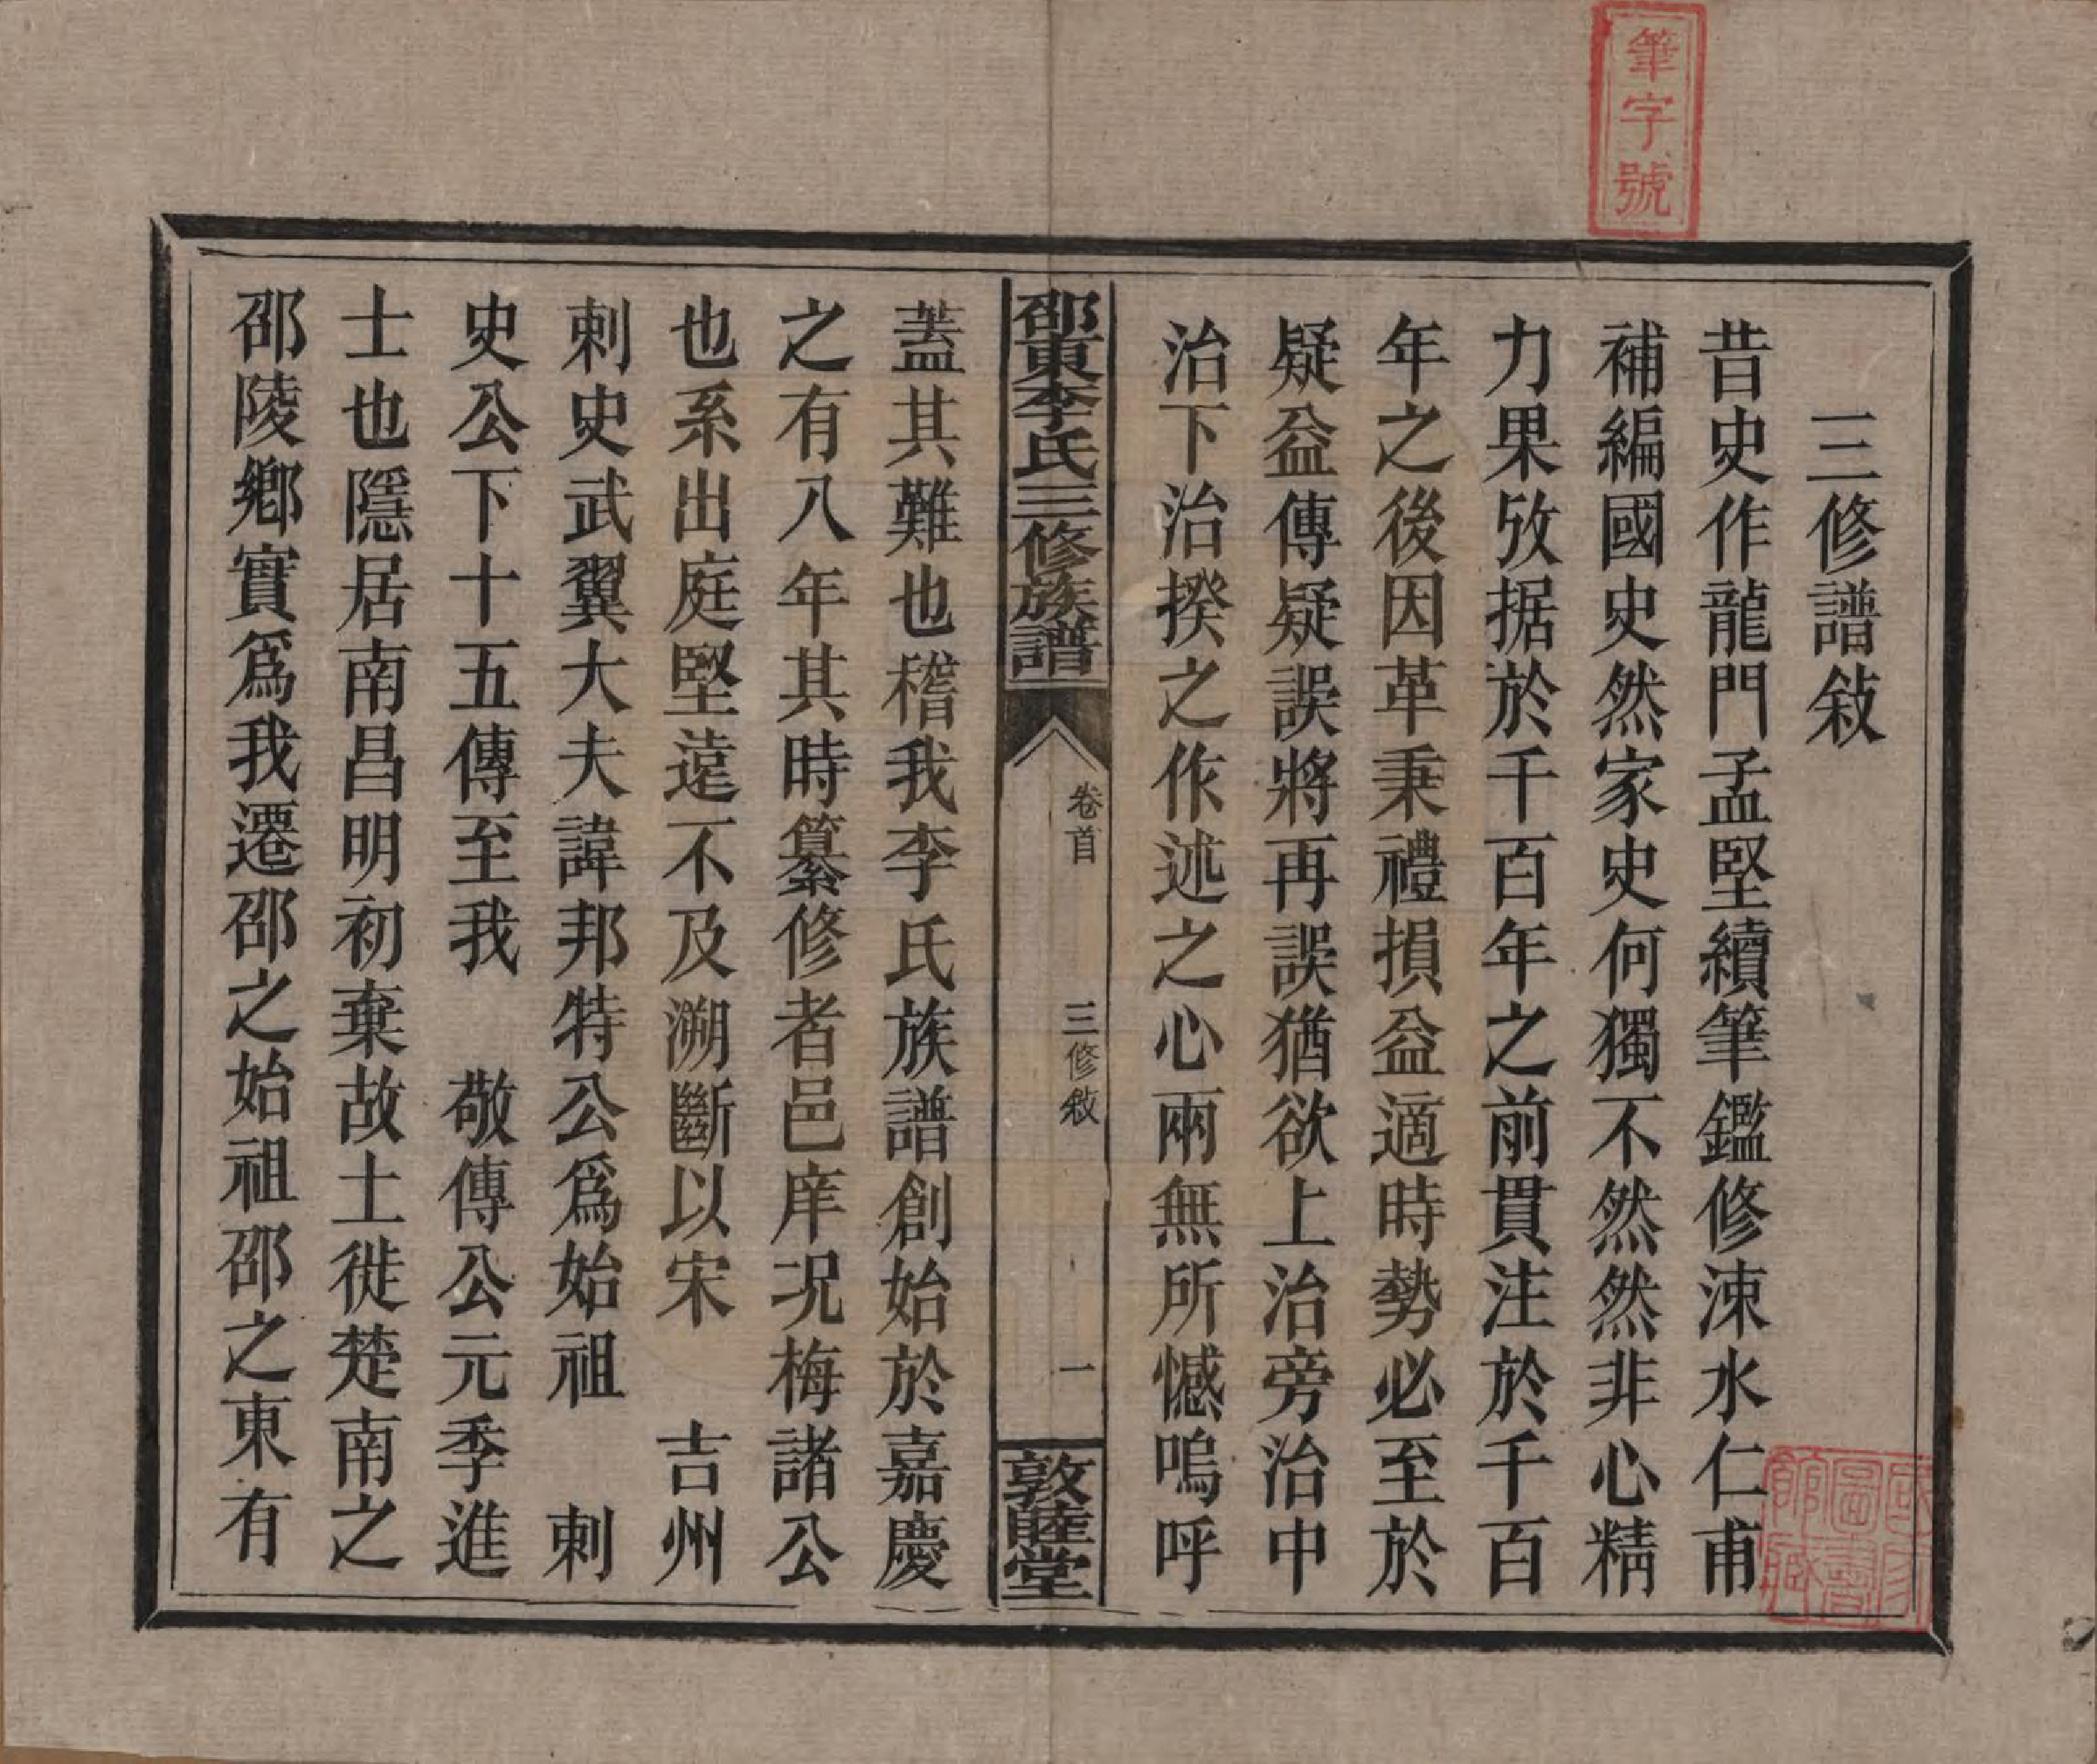 筆字號
三修譜敍
昔史作龍門孟堅續筆鑑修涑水仁甫
補編國史然家史何獨不然然非心精
力果攷据於千百年之前貫注於千百
年之後因革秉禮損益適時勢必至於
疑益傳疑誤將再誤猶欲上治旁治中
治下治揆之作述之心兩無所憾嗚呼
邵東李氏三修族譜
卷首
三修敍
一
敦睦堂
蓋其難也稽我李氏族譜創始於嘉慶
之有八年其時纂修者邑庠况梅諸公
也系出庭堅遠不及溯斷以宋 吉州
刺史武翼大夫諱邦特公爲始祖 刺
史公下十五傳至我 敬傳公元季進
士也隱居南昌明初棄故土徙楚南之
邵陵鄉實爲我遷邵之始祖邵之東有
國家圖書館藏